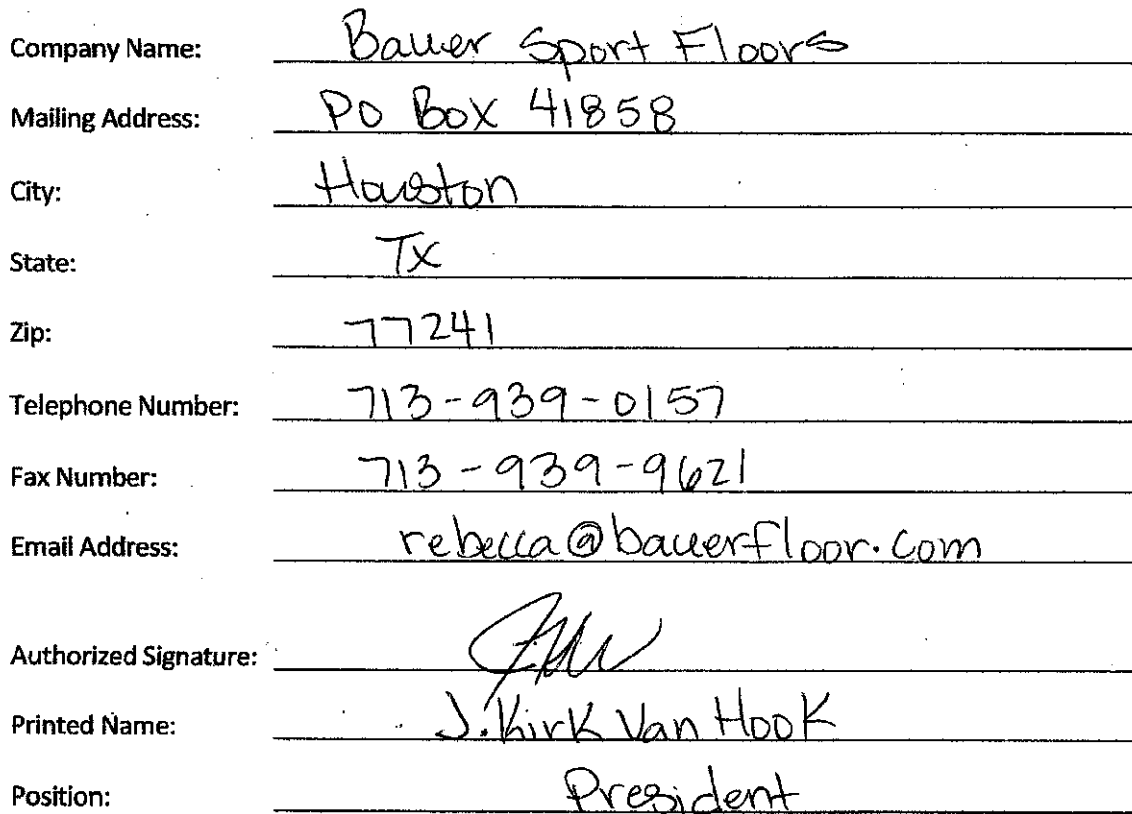 Company Name: Bauer Sport Floors
Mailing Address: PO Box 41858
City: Houston
State: TX
Zip: 77241
Telephone Number: 713-939-0157
Fax Number: 713-939-9621
Email Address: rebecca@bauerfloor.com
Authorized Signature:
Printed Name: J. Kirk Van Hook
Position: President